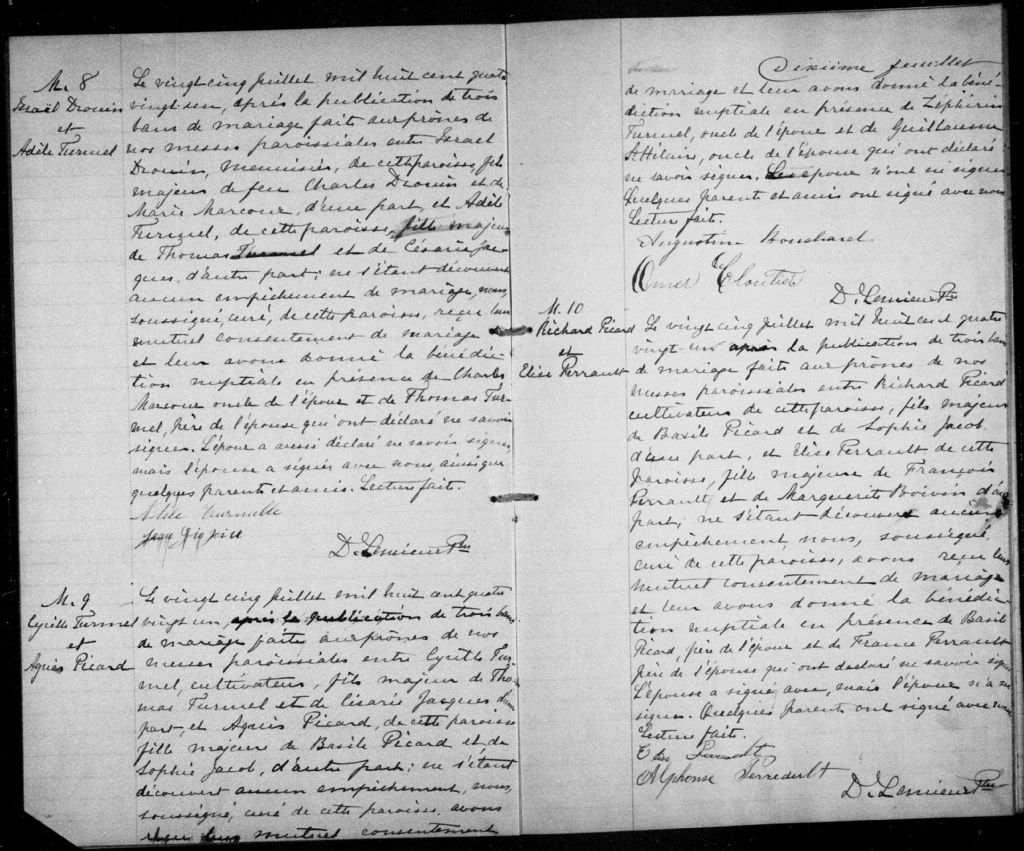 M. 8
Israël Drouin
et
Adèle Turmel
Le vingt cinq Juillet mil huit cent quatre
vingt-un, après la publication de trois
bans de mariage faite aux prônes de
nos messes paroissiales entre Israel
Drouin, menuisier, de cette paroisse, fils
majeur de feu Charles Drouin et de
Marie Marcoux, d'une part, et Adèle
Turmel, de cette paroisse, fille majeure
de Thomas Turmel et de Césarie Jac-
ques, d'autre part; ne s'étant découvert
aucun empêchement de mariage, nous,
soussigné, curé, de cette paroisse, reçu leur
mutuel consentement de mariage
et leur avons donné la bénédic-
tion nuptiale en présence de Charles
Marcoux oncle de l'époux et de Thomas Tur-
mel, père de l'épouse qui ont déclaré ne savoir
signer. L'époux a aussi déclaré ne savoir signer,
mais l'épouse a signée avec nous, ainsi que
quelques parents et amis. Lecture fait.
Adèle Turmelle
Jean
D. Lemieux Ptre
M. 9
Cyrille Turmel
et
Agnès Picard
Le vingt cinq Juillet mil huit cent quatre
vingt un après la publication de trois bans
de mariage faite aux prônes de nos
messes paroissiales entre Cyrille Tur-
mel, cultivateur, fils majeur de Tho-
mas Turmel et de Césarie Jacques d'une
part, et Agnès Picard, de cette paroisse
fille majeure de Basile Picard et de
Sophie Jacob, d'autre part; ne s'étant
découvert aucun empêchement, nous,
soussigné, curé de cette paroisse, avons
reçu leur mutuel consentement
Dixième feuillet
de mariage et leur avons donné la béné-
diction nuptiale en présence de Zéphirin
Turmel, oncle de l'époux et de Guillaume
St Hilaire, oncle de l'épouse qui ont déclaré
ne savoir signer. Les époux n'ont su signer
Quelques parents et amis ont signé avec nous
Lecture fait.
Augustin Houchard
Omer Cloutier
D. Lemieux Ptre
M. 10
Richard Picard
et
Elise Perrault
Le vingt cinq Juillet mil huit cent quatre
vingt-un après la publication de trois bans
de mariage faite aux prônes de nos
messes paroissiales entre Richard Picard
cultivateur de cette paroisse, fils majeur
de Basile Picard et de Sophie Jacob
d'une part, et Elise Perrault de cette
paroisse, fille majeure de François
Perrault et de Marguerite Boivin d'autre
part; ne s'étant découvert aucun
empêchement nous, soussigné,
curé de cette paroisse, avons reçu leur
mutuel consentement de mariage
et leur avons donné la bénédic-
tion nuptiale en présence de Basile
Picard, père de l'époux et de France Perrault
père de l'épouse qui ont déclaré ne savoir signer
L'épouse a signé avec, mais l'époux n'a su
signer. Quelques parents ont signé avec nous
Lecture fait.
Elise Perrault
Alphonse Perreault
D. Lemieux Ptre